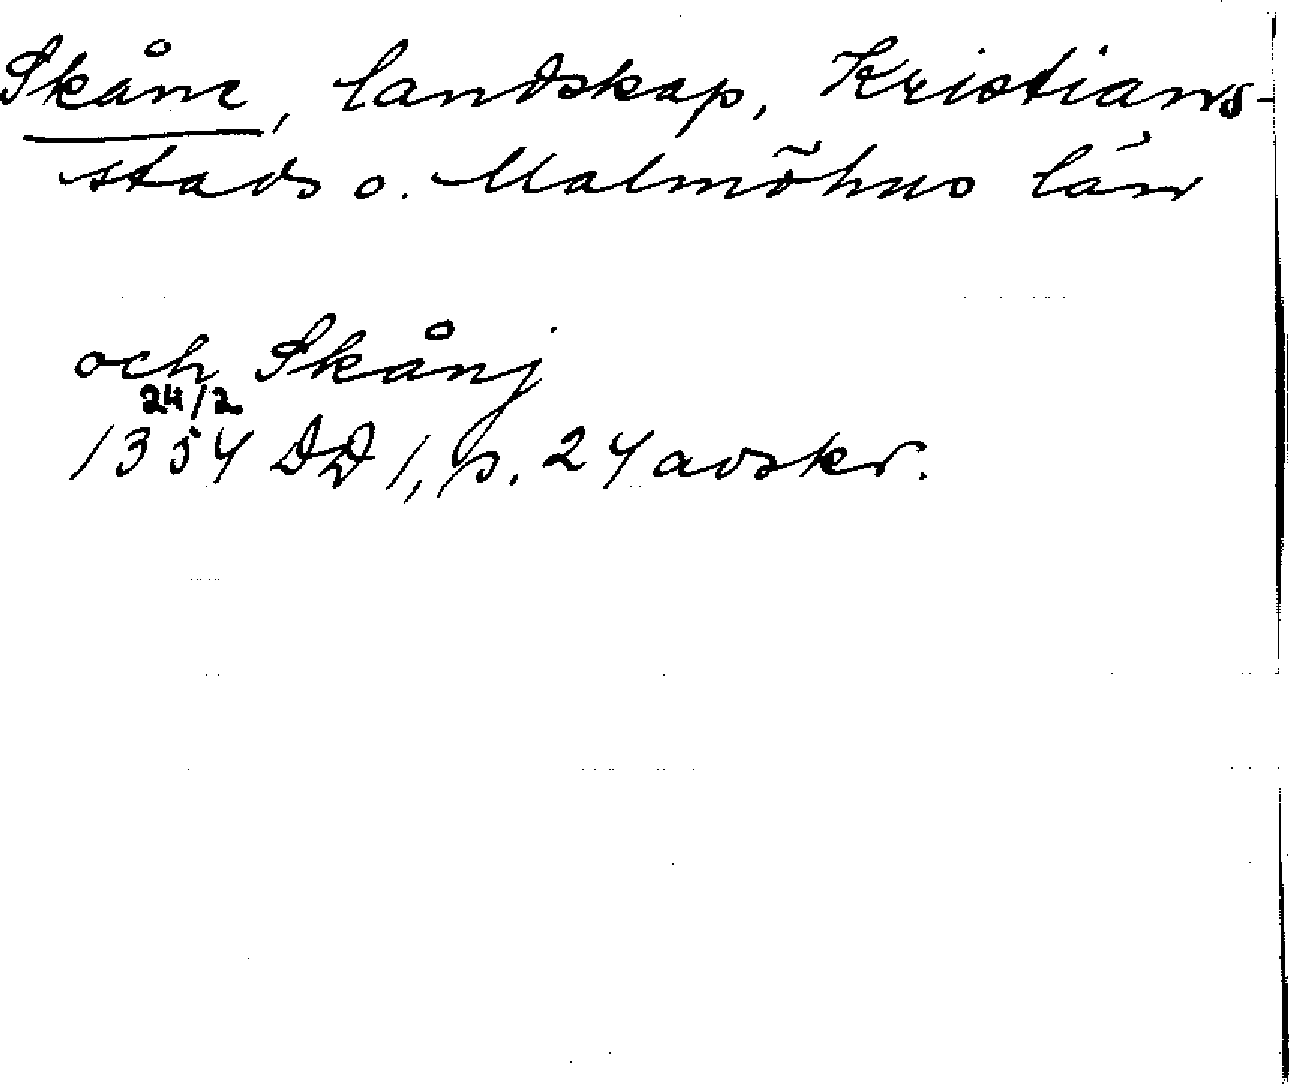 Skåne, landskap, Kristians-
stads o. Malmöhus län
och Skånj
24/2
1354 DD 1, s. 24 avskr.